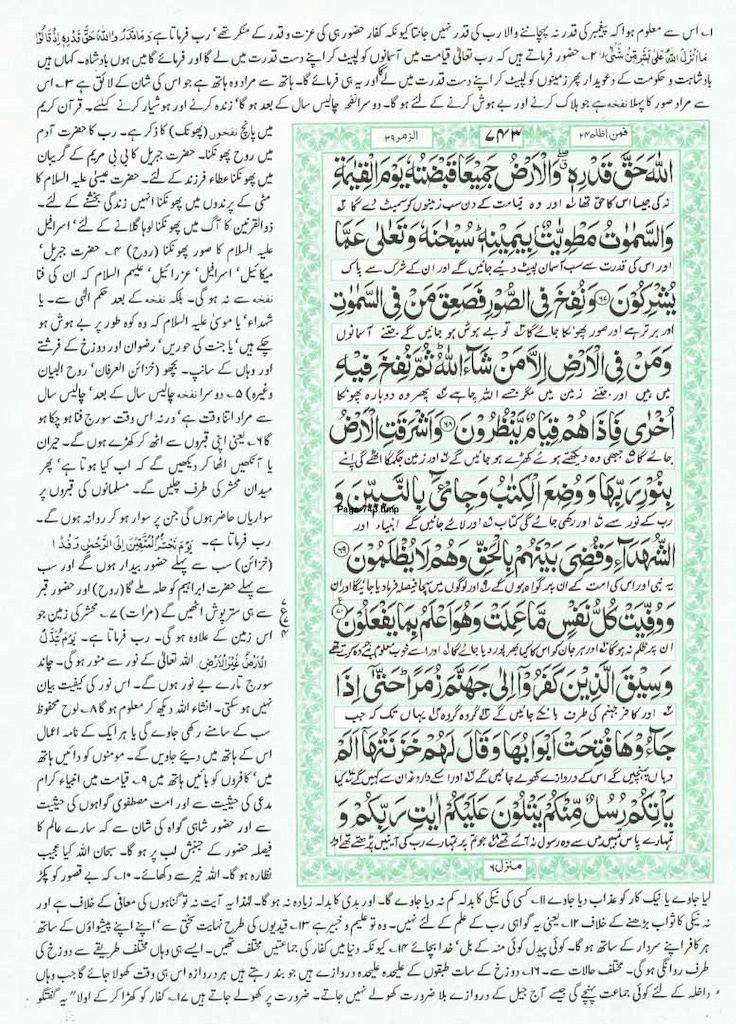 ۱۔ اس سے معلوم ہوا کہ پیغمبر کی قدر نہ پہچاننے والا رب کی قدر نہیں جانتا کیونکہ کفار حضور ہی کی عزت و قدر کے منکر تھے' رب فرماتا ہے وَمَا قَدَرُوا اللّٰهَ حَقَّ قَدْرِهٖٓ اِذْ قَالُوْا
مَآ اَنْزَلَ اللّٰهُ عَلٰى بَشَرٍ مِّنْ شَىْءٍ ۲۔ حضور فرماتے ہیں کہ رب تعالیٰ قیامت میں آسمانوں کو لپیٹ کر اپنے دست قدرت میں لے گا اور فرمائے گا میں ہوں بادشاہ۔ کہاں ہیں
بادشاہت و حکومت کے دعویدار پھر زمینوں کو لپیٹ کر اپنے دست قدرت میں لے گا اور یہ ہی فرمائے گا۔ ہاتھ سے مراد وہ ہاتھ ہے جو اس کی شان کے لائق ہے ۳۔ اس
سے مراد صور کا پہلا نفخہ ہے جو ہلاک کرنے اور بے ہوش کرنے کے لئے ہو گا۔ دوسرا نفخہ چالیس سال کے بعد ہو گا' زندہ کرنے اور ہوشیار کرنے کیلئے۔ قرآن کریم
میں پانچ نفخوں (پھونک) کا ذکر ہے۔ رب کا حضرت آدم
میں روح پھونکنا۔ حضرت جبریل کا بی بی مریم کے گریبان
میں پھونکنا عطاء فرزند کے لئے۔ حضرت عیسیٰ علیہ السلام کا
مٹی کے پرندوں میں پھونکنا انہیں زندگی بخشنے کے لئے۔
ذوالقرنین کا آگ میں پھونکنا لوہا گلانے کے لئے' اسرافیل
علیہ السلام کا صور پھونکنا (روح) ۴۔ حضرت جبریل'
میکائیل' اسرافیل' عزرائیل' علیہم السلام کہ ان کی فنا
نفخہ سے نہ ہو گی۔ بلکہ نفخہ کے بعد حکم الٰہی سے۔ یا
شہداء' یا موسیٰ علیہ السلام کہ وہ کوہ طور پر بے ہوش ہو
چکے ہیں' یا جنت کی حوریں' رضوان اور دوزخ کے فرشتے
اور وہاں کے سانپ۔ بچھو (خزائن العرفان' روح البیان
وغیرہ) ۵۔ دوسرا نفخہ چالیس سال کے بعد' چالیس سال
سے مراد اتنا وقت ہے' ورنہ اس وقت سورج فنا ہو چکا ہو
گا ۶۔ یعنی اپنی قبروں سے اٹھ کر کھڑے ہوں گے۔ حیران
یا آنکھیں اٹھا کر دیکھیں گے کہ اب کیا ہوتا ہے' پھر
میدان محشر کی طرف چلیں گے۔ مسلمانوں کی قبروں پر
سواریاں حاضر ہوں گی جن پر سوار ہو کر روانہ ہوں گے۔
رب فرماتا ہے۔ يَوْمَ نَحْشُرُ الْمُتَّقِيْنَ اِلَى الرَّحْمٰنِ وَفْدًا
(خزائن) سب سے پہلے حضور بیدار ہوں گے اور سب
سے پہلے حضرت ابراہیم کو حلہ ملے گا (روح) اور حضور قبر
سے ہی ستر پوش اٹھیں گے (مرآت) ۷۔ محشر کی زمین جو
اس زمین کے علاوہ ہو گی۔ رب فرماتا ہے۔ يَوْمَ تُبَدَّلُ
الْاَرْضُ غَيْرَ الْاَرْضِ اللہ تعالیٰ کے نور سے منور ہو گی۔ چاند
سورج تارے بے نور ہوں گے۔ اس نور کی کیفیت بیان
نہیں ہو سکتی۔ انشاء اللہ دیکھ کر معلوم ہو گا ۸۔ لوح محفوظ
سب کے سامنے رکھی جاوے گی یا ہر ایک کے نامہ اعمال
اس کے ہاتھ میں دیئے جاویں گے۔ مومنوں کو دائیں ہاتھ
میں' کافروں کو بائیں ہاتھ میں ۹۔ قیامت میں انبیاء کرام
مدعی کی حیثیت سے اور امت مصطفوی گواہوں کی حیثیت
سے اور حضور شاہی گواہ کی شان سے کہ سارے عالم کا
فیصلہ حضور کے جنبش لب پر ہو گا۔ سبحان اللہ کیا عجیب
نظارہ ہو گا۔ اللہ خیر سے دکھائے۔ ۱۰۔ کہ بے قصور کو پکڑ
فمن اظلم ۲۴
۷۴۳
الزمر ۳۹
اللّٰهَ حَقَّ قَدْرِهٖ ۖ وَالْاَرْضُ جَمِيْعًا قَبْضَتُهٗ يَوْمَ الْقِيٰمَةِ
نہ کی جیسا اس کا حق تھا اور وہ قیامت کے دن سب زمینوں کو سمیٹ دے گا
وَالسَّمٰوٰتُ مَطْوِيّٰتٌۢ بِيَمِيْنِهٖ ۭ سُبْحٰنَهٗ وَتَعٰلٰى عَمَّا
اور اس کی قدرت سے سب آسمان لپیٹ دیئے جائیں گے اور ان کے شرک سے پاک
يُشْرِكُوْنَ ۶۷ وَنُفِخَ فِى الصُّوْرِ فَصَعِقَ مَنْ فِى السَّمٰوٰتِ
اور برتر ہے اور صور پھونکا جائے گا تو بے ہوش ہو جائیں گے جتنے آسمانوں
وَمَنْ فِى الْاَرْضِ اِلَّا مَنْ شَآءَ اللّٰهُ ۭ ثُمَّ نُفِخَ فِيْهِ
میں ہیں اور جتنے زمین میں مگر جسے اللہ چاہے پھر وہ دوبارہ پھونکا
اُخْرٰى فَاِذَا هُمْ قِيَامٌ يَّنْظُرُوْنَ ۶۸ وَاَشْرَقَتِ الْاَرْضُ
جائے گا جبھی وہ دیکھتے ہوئے کھڑے ہو جائیں گے اور زمین جگمگا اٹھے گی اپنے
بِنُوْرِ رَبِّهَا وَوُضِعَ الْكِتٰبُ وَجِايْٓءَ بِالنَّبِيّٖنَ وَ
Page-743.bmp
رب کے نور سے اور رکھی جائے گی کتاب اور لائے جائیں گے انبیاء اور
الشُّهَدَآءِ وَقُضِىَ بَيْنَهُمْ بِالْحَقِّ وَهُمْ لَا يُظْلَمُوْنَ ۶۹
یہ نبی اور اس کی امت کے ان پر گواہ ہوں گے اور لوگوں میں سچا فیصلہ فرما دیا جائیگا اور ان
وَوُفِّيَتْ كُلُّ نَفْسٍ مَّا عَمِلَتْ وَهُوَ اَعْلَمُ بِمَا يَفْعَلُوْنَ ۷۰
ان پر ظلم نہ ہوگا اور ہر جان کو اس کا کیا بھرپور دیا جائے گا اور اسے خوب معلوم ہے جو وہ کرتے تھے
وَسِيْقَ الَّذِيْنَ كَفَرُوْٓا اِلٰى جَهَنَّمَ زُمَرًا ۭ حَتّٰٓى اِذَا
اور کافر جہنم کی طرف ہانکے جائیں گے گروہ گروہ یہاں تک کہ جب
جَآءُوْهَا فُتِحَتْ اَبْوَابُهَا وَقَالَ لَهُمْ خَزَنَتُهَآ اَلَمْ
وہاں پہنچیں گے اس کے دروازے کھولے جائیں گے اور اسکے داروغہ ان سے کہیں گے کیا
يَاْتِكُمْ رُسُلٌ مِّنْكُمْ يَتْلُوْنَ عَلَيْكُمْ اٰيٰتِ رَبِّكُمْ وَ
تمہارے پاس تمہیں میں سے وہ رسول نہ آئے تھے جو تم پر تمہارے رب کی آیتیں پڑھتے تھے اور
منزل ۶
لیا جاوے یا نیک کار کو عذاب دیا جاوے ۱۱۔ کسی کی نیکی کا بدلہ کم نہ دیا جاوے گا۔ اور بدی کا بدلہ زیادہ نہ ہو گا۔ لہٰذا یہ آیت نہ تو گناہوں کی معافی کے خلاف ہے اور
نہ نیکی کا ثواب بڑھنے کے خلاف ۱۲۔ یعنی یہ گواہی رب کے علم کے لئے نہیں۔ وہ تو علیم و خبیر ہے ۱۳۔ قیدیوں کی طرح نہایت سختی سے' اپنے اپنے پیشواؤں کے ساتھ
ہر کافر اپنے سردار کے ساتھ ہو گا۔ کوئی پیدل کوئی منہ کے بل' خدا بچائے ۱۴۔ کیونکہ دنیا میں کفار کی جماعتیں مختلف تھیں۔ ایسے ہی وہاں مختلف طریقے سے دوزخ کی
طرف روانگی ہو گی۔ مختلف حالات سے۔ ۱۶۔ دوزخ کے سات طبقوں کے علیحدہ علیحدہ دروازے ہیں جو بند رہتے ہیں ہر دروازہ اس ہی وقت کھولا جائے گا جب وہاں
داخلہ کے لئے کوئی جماعت پہنچے گی جیسے آج جیل کے دروازے بلا ضرورت کھولے نہیں جاتے۔ ضرورت پر کھولے جاتے ہیں ۱۷۔ کفار کو کھڑا کر کے اولا" یہ گفتگو